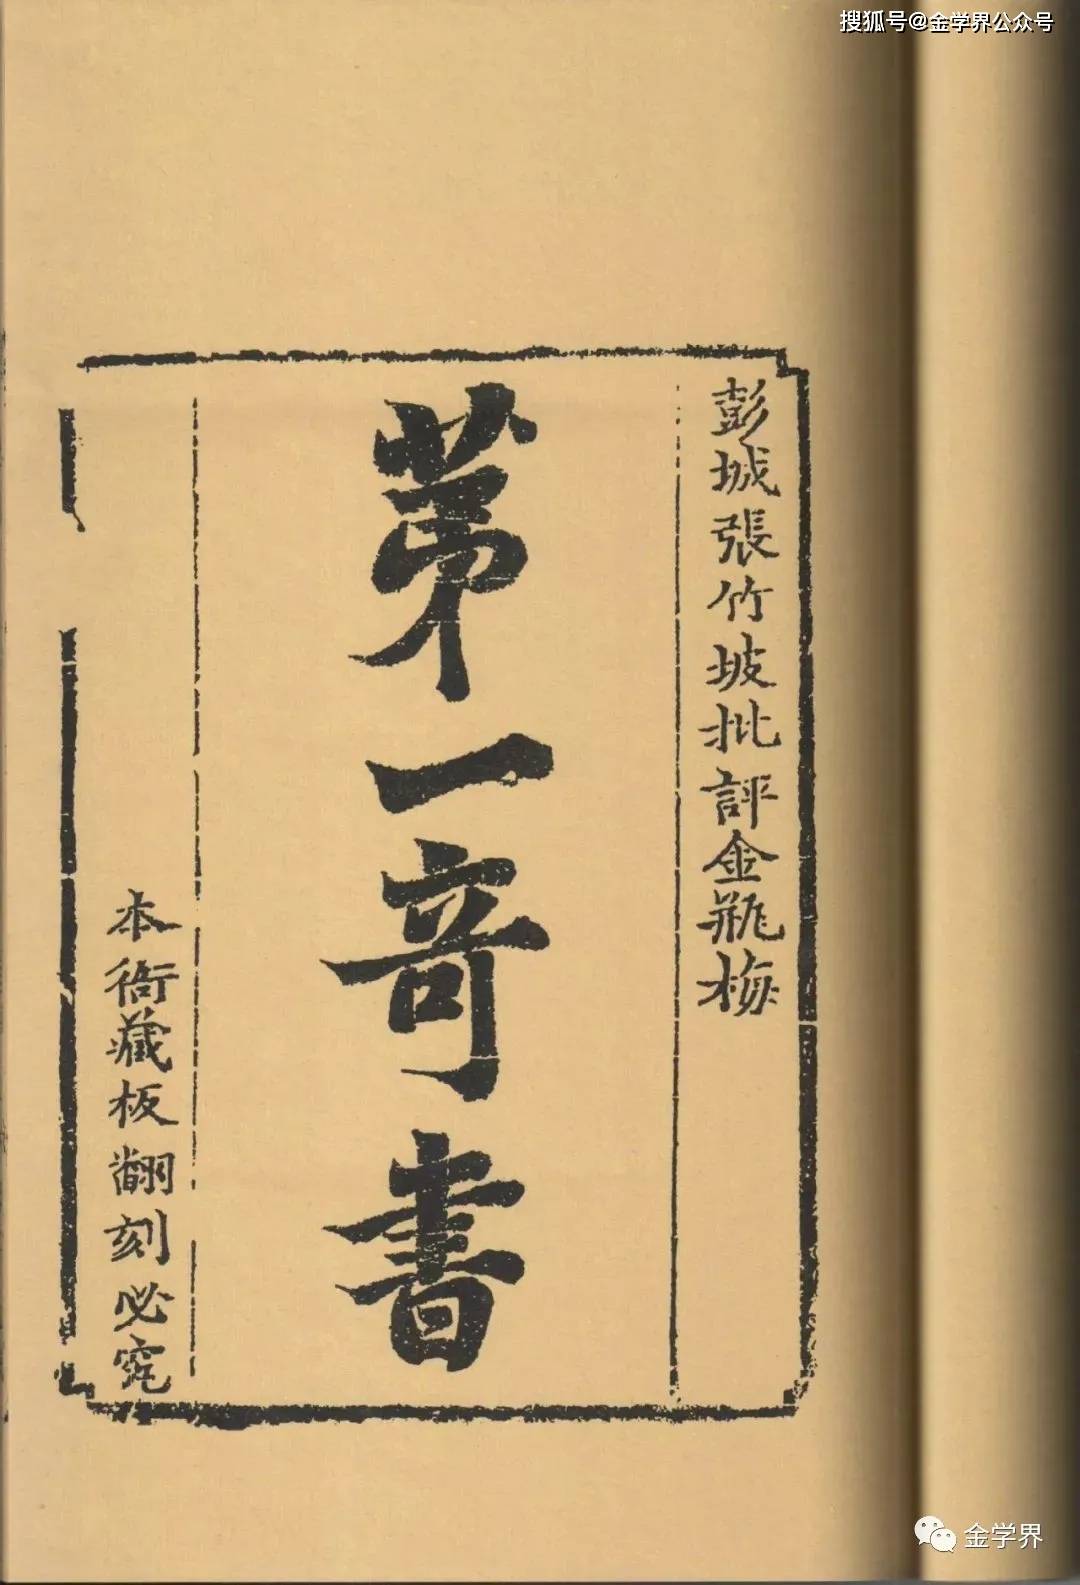 搜狐号@金学界公众号
彭城張竹坡批評金瓶梅
苐一奇書
本衙藏板翻刻必究
金学界